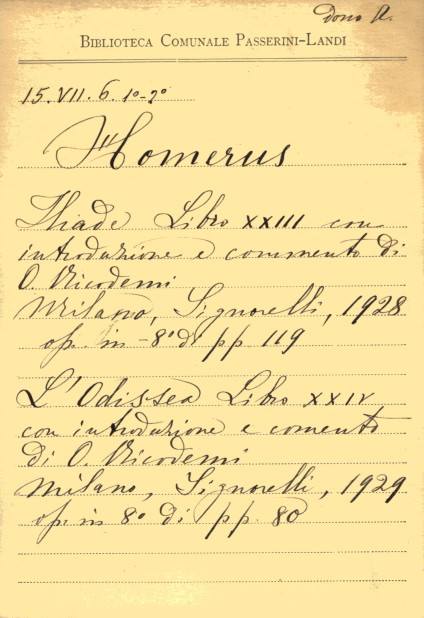 dono A.
BIBLIOTECA COMUNALE PASSERINI-LANDI
15.VII.6.1º-2º
Homerus
Iliade Libro XXIII con
introduzione e commento di
O. Nicodemi
Milano, Signorelli, 1928
op. in -8º di pp. 119
L'Odissea Libro XXIV
con introduzione e comento
di O. Nicodemi
Milano, Signorelli, 1929
op. in 8º di pp. 80